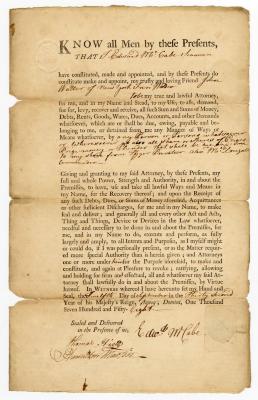 KNOW all Men by these Presents,
THAT I Edward McCabe
have constituted, made and appointed, and by these Presents do
constitute make and appoint, my trusty and loving Friend John
Walter of New York Inn
my true and lawful Attorney,
for me, and in my Name and Stead, to my Use, to ask, demand,
sue for, levy, recover and receive, all such Sum and Sums of Money,
Debts, Rents, Goods, Wares, Dues, Accounts, and other Demands
whatsoever, which are or shall be due, owing, payable and be-
longing to me, or detained from me any Manner of Ways or
Means whatsoever, by any Person or Persons
Giving and granting to my said Attorney, by these Presents, my
full and whole Power, Strength and Authority, in and about the
Premisses, to have, use and take all lawful Ways and Means in
my Name, for the Recovery thereof; and upon the Receipt of
any such Debts, Dues, or Sums of Money aforesaid, Acquittances
or other Sufficient Discharges, for me and in my Name, to make
seal and deliver; and generally all and every other Act and Acts,
Thing and Things, Device or Devices in the Law whatsoever,
needful and necessary to be done in and about the Premisses, for
me, and in my Name to do, execute and perform, as fully
largely and amply, to all Intents and Purposes, as I myself might
or could do, if I was personally present, or as the Matter requir-
ed more special Authority than is herein given; and Attorneys
one or more under him for the Purpose aforesaid, to make and
constitute, and again at Pleasure to revoke; ratifying, allowing
and holding for firm and effectual, all and whatsoever my said At-
torney shall lawfully do in and about the Premisses, by Virtue
hereof. In WITNESS whereof I have hereunto set my Hand and
Seal, the Day of September in the Thirty Second
Year of his Majesty's Reign, Annoq; Domini, One Thousand
Seven Hundred and Fifty-Eight
Sealed and Delivered
in the Presence of
Edwd McCabe
Thomas